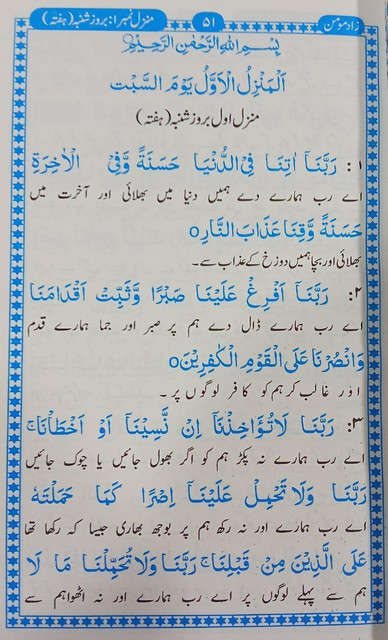 زادِ مومن ۵۱ منزل نمبر۱: بروز شنبہ (ہفتہ)
بِسْمِ اللهِ الرَّحْمٰنِ الرَّحِيْمِ
اَلْمَنْزِلُ الْاَوَّلُ يَوْمَ السَّبْت
منزل اول بروز شنبہ (ہفتہ)
۱: رَبَّنَآ اٰتِنَا فِي الدُّنْيَا حَسَنَةً وَّفِي الْاٰخِرَةِ
اے رب ہمارے دے ہمیں دنیا میں بھلائی اور آخرت میں
حَسَنَةً وَّقِنَا عَذَابَ النَّارِ○
بھلائی اور بچا ہمیں دوزخ کے عذاب سے۔
۲: رَبَّنَآ اَفْرِغْ عَلَيْنَا صَبْرًا وَّثَبِّتْ اَقْدَامَنَا
اے رب ہمارے ڈال دے ہم پر صبر اور جما ہمارے قدم
وَانْصُرْنَا عَلَى الْقَوْمِ الْكٰفِرِيْنَ○
اور غالب کر ہم کو کافر لوگوں پر۔
۳: رَبَّنَا لَا تُؤَاخِذْنَآ اِنْ نَّسِيْنَآ اَوْ اَخْطَاْنَا ۚ
اے رب ہمارے نہ پکڑ ہم کو اگر بھول جائیں یا چوک جائیں
رَبَّنَا وَلَا تَحْمِلْ عَلَيْنَآ اِصْرًا كَمَا حَمَلْتَهٗ
اے رب ہمارے اور نہ رکھ ہم پر بوجھ بھاری جیسا کہ رکھا تھا
عَلَى الَّذِيْنَ مِنْ قَبْلِنَا ۚ رَبَّنَا وَلَا تُحَمِّلْنَا مَا لَا
ہم سے پہلے لوگوں پر اے رب ہمارے اور نہ اٹھوا ہم سے